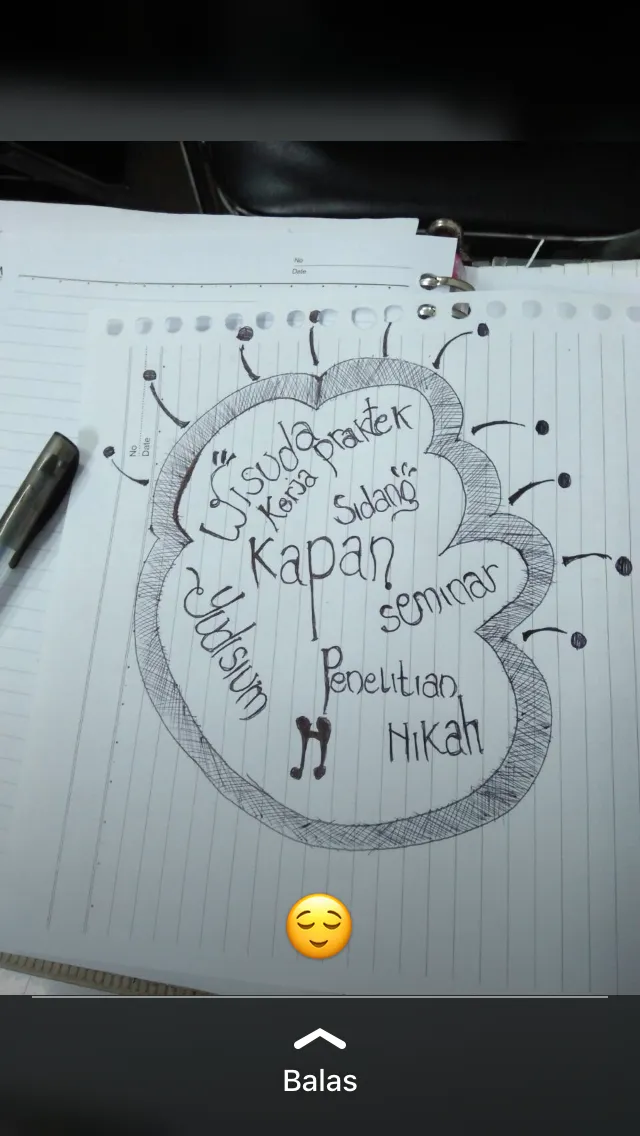 No
Date
No
Date
Wisuda
Kerja praktek
Sidang
Kapan
seminar
Yudisium
Penelitian
Nikah
Balas